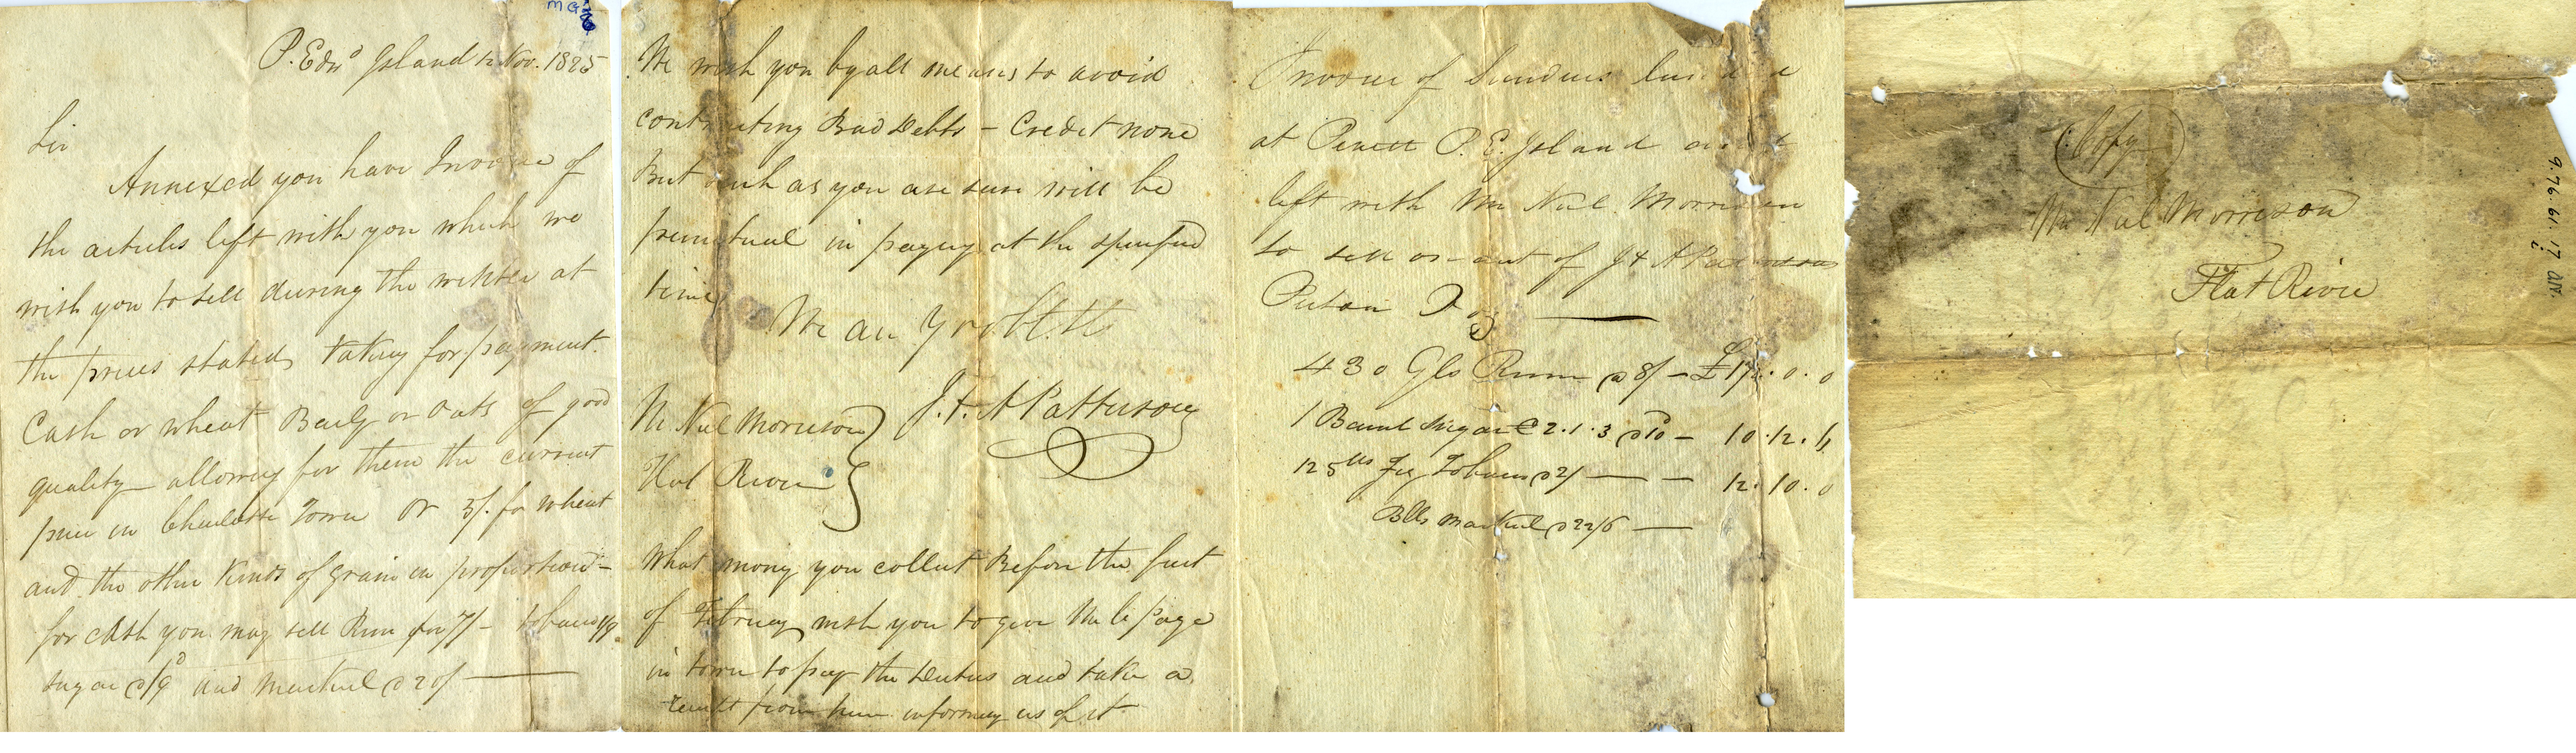 P. Edwd Island Nov. 1825
Sir
Annexed you have Invoice of
the articles left with you which we
wish you to sell during the winter at
the prices stated taking for payment.
Cash or wheat Barly or Oats of good
quality allowing for them the current
price in Charlotte Town or 5/. for wheat
and the other kinds of grain in proportion -
for cash you may sell Rum for 7/ - tobacco 1/9
Sugar @ /9d and Mackrel @ 20/
We wish you by all means to avoid
contracting Bad Debts - Credit none
But such as you are sure will be
punctual in paying at the specified
time
We are Yr obt. St
J. & A Patterson
Mr Neil Morrison
Flat River
What mony you collect Before the first
of February wish you to give Mr le page
in town to pay the Duties and take a
receipt from him informing us of it
Invoice of Sundries
at Pinett P. E. Island
left with Mr Neil Morrison
to sell on of J & A Patterson
Pictou
430 Gls Rum @ 8/ - £172.0.0
1 Barrel Sugar C 2.1.3 @ 10d - 10.12.
125 lbs Fig Tobacco @ 2/ 12.10.0
Bls Mackrel @ 22/6
(Copy)
Mr Neil Morrison
Flat River
9.76.61.17